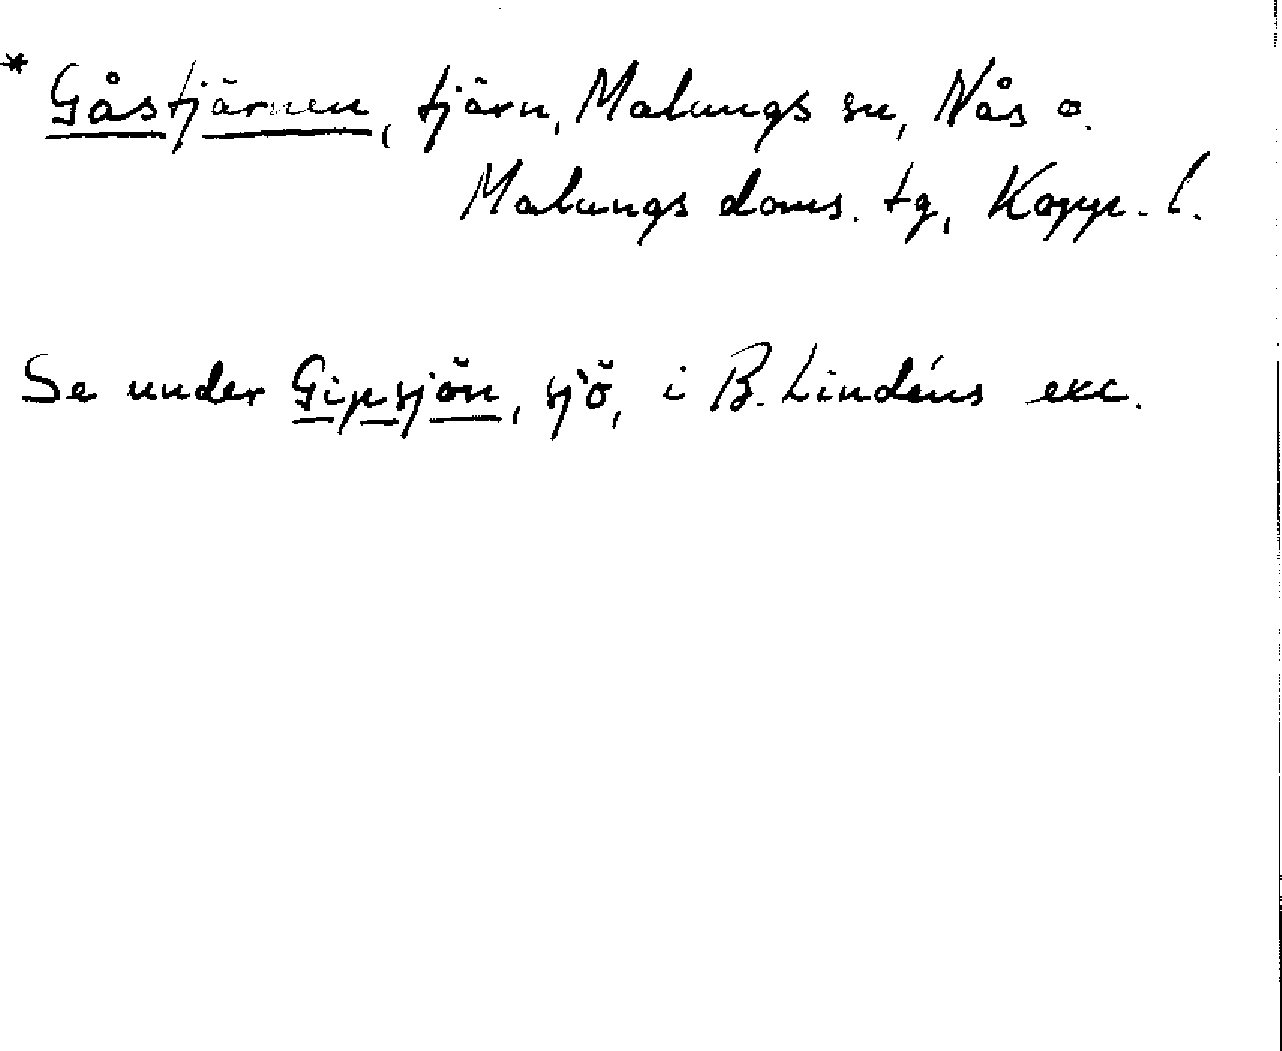 * Gåstjärnen, tjärn, Malungs sn, Nås o.
Malungs doms. tg, Kopp. l.
Se under Gipsjön, sjö, i B. Lindéns exc.